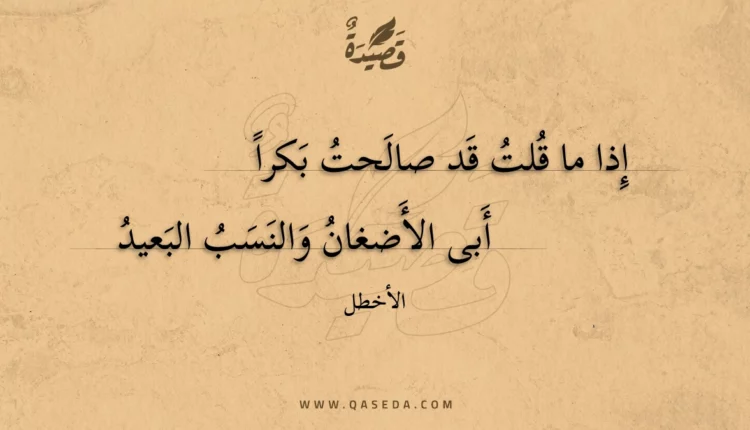 قَصِيدَةٌ
إِذا ما قُلتُ قَد صالَحتُ بَكراً
أَبى الأَضغانُ وَالنَسَبُ البَعيدُ
الأخطل
WWW.QASEDA.COM